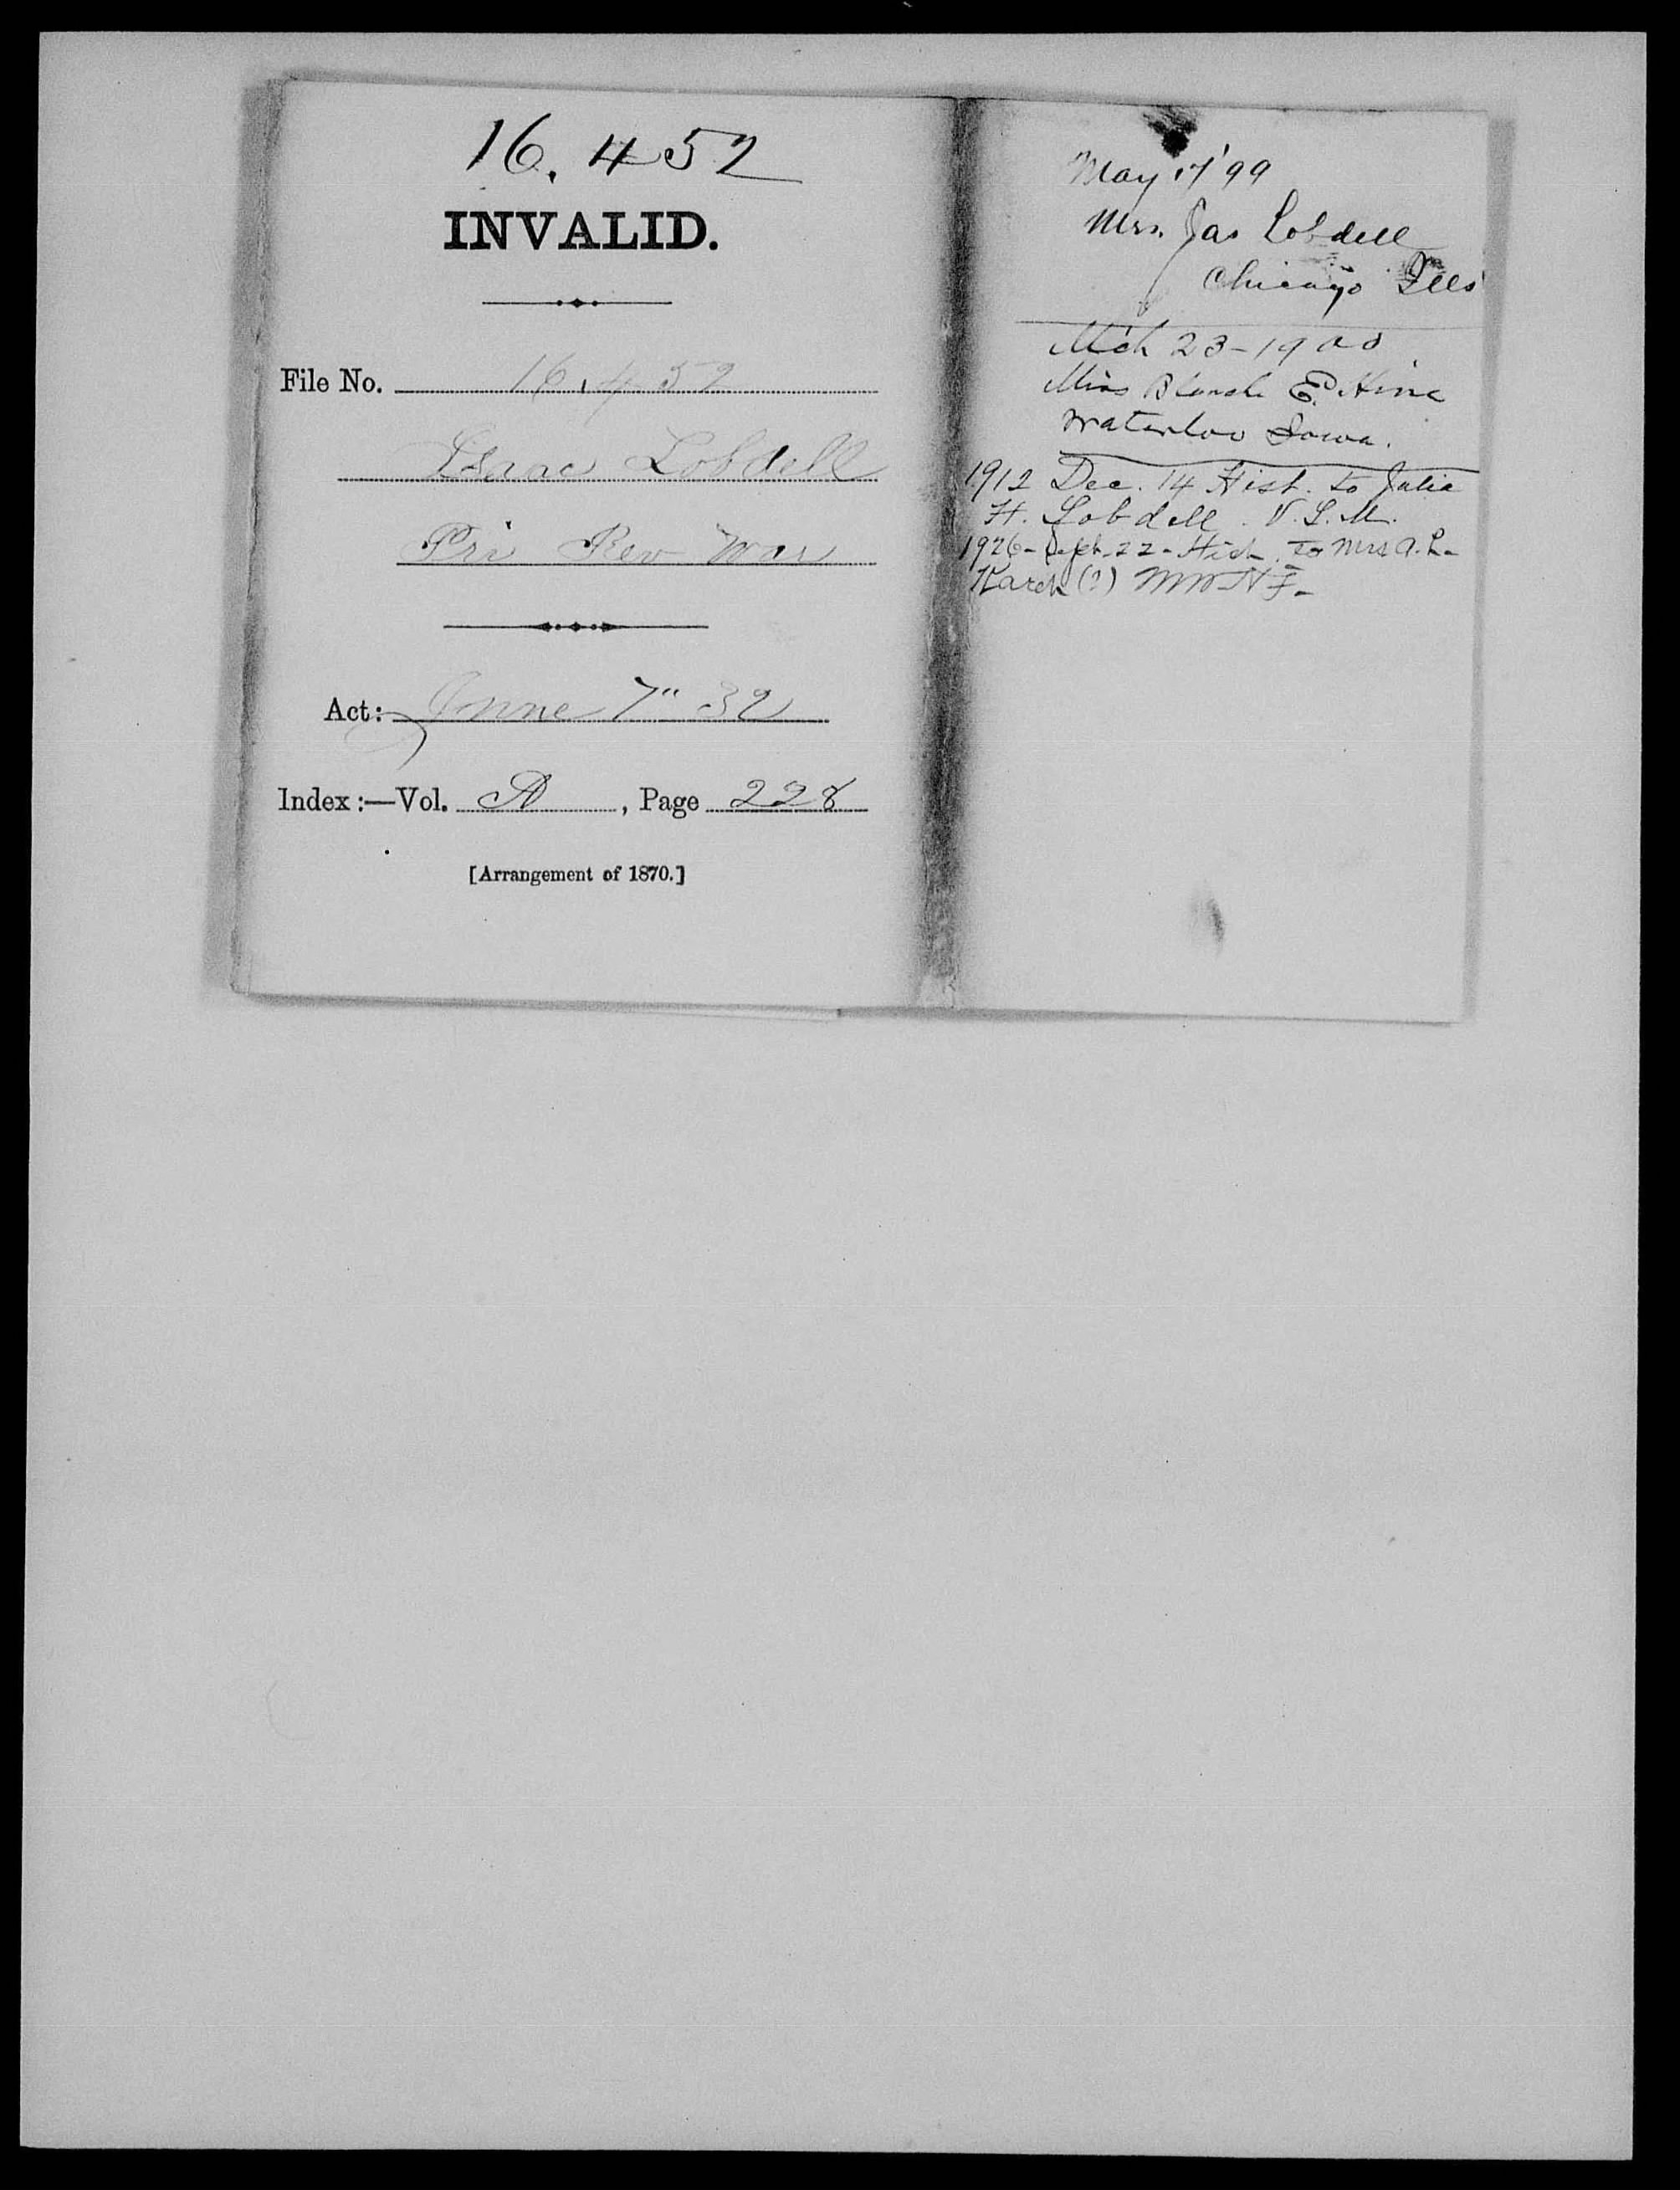 16.452
INVALID.
File No. 16.452
Isaac Lobdell
Pri Rev War
Act: June 7" 32
Index:—Vol. A, Page 228
[Arrangement of 1870.]
May 17 '99
Mrs. Jas Lobdell
Chicago Ills
Mch 23-1900
Miss Blanch E. Hine
Waterloo Iowa.
1912 Dec. 14 Hist. to Julia
H. Lobdell. V.L.M.
1926-Sept-22-Hist. to Mrs A.L-
Karch(?)